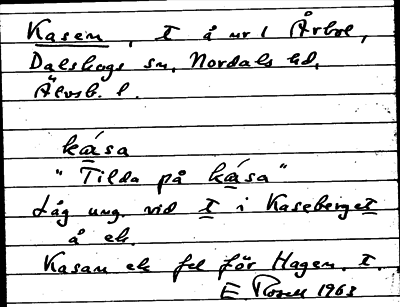 Kasen, T å nr 1 Årbol,
Dalskogs sn, Nordals hd,
Älvsb. l.
kása
"Tilda på kása"
Låg ung. vid T i Kaseberget
å ek.
Kasan ek fel för Hagen. T.
E. Rosell 1963